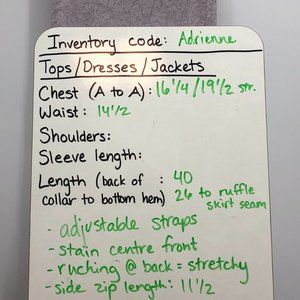 Inventory code: Adrienne
Tops/Dresses/Jackets
Chest (A to A): 16 1/4 / 19 1/2 str.
Waist: 14 1/2
Shoulders:
Sleeve length:
Length (back of : 40
collar to bottom hem) 26 to ruffle
skirt seam
- adjustable straps
- stain centre front
- ruching @ back = stretchy
- side zip length: 11 1/2